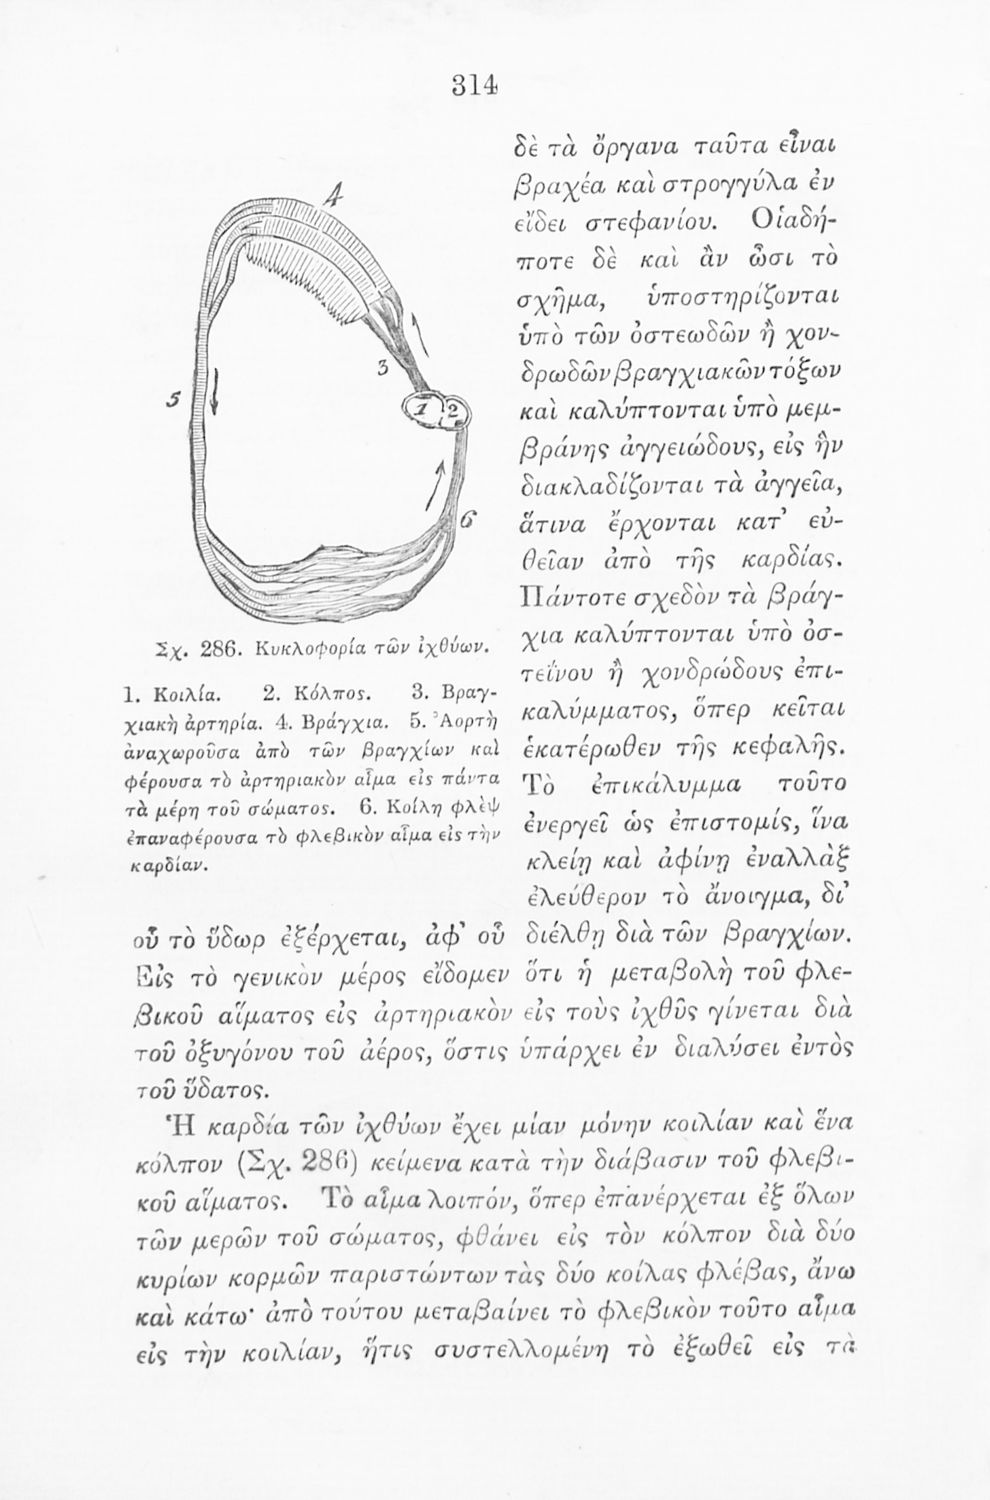 314
δὲ τὰ ὄργανα ταῦτα εἶναι
βραχέα καὶ στρογγύλα ἐν
εἴδει στεφανίου. Οἱαδή-
ποτε δὲ καὶ ἂν ὦσι τὸ
σχῆμα, ὑποστηρίζονται
ὑπὸ τῶν ὀστεωδῶν ἢ χον-
δρωδῶν βραγχιακῶν τόξων
καὶ καλύπτονται ὑπὸ μεμ-
βράνης ἀγγειώδους, εἰς ἣν
διακλαδίζονται τὰ ἀγγεῖα,
ἅτινα ἔρχονται κατ' εὐ-
θεῖαν ἀπὸ τῆς καρδίας.
Πάντοτε σχεδὸν τὰ βράγ-
χια καλύπτονται ὑπὸ ὀσ-
τεΐνου ἢ χονδρώδους ἐπι-
καλύμματος, ὅπερ κεῖται
ἑκατέρωθεν τῆς κεφαλῆς.
Τὸ ἐπικάλυμμα τοῦτο
ἐνεργεῖ ὡς ἐπιστομίς, ἵνα
κλείῃ καὶ ἀφίνῃ ἐναλλὰξ
ἐλεύθερον τὸ ἄνοιγμα, δι'
4
3
5
1 2
6
Σχ. 286. Κυκλοφορία τῶν ἰχθύων.
1. Κοιλία. 2. Κόλπος. 3. Βραγ-
χιακὴ ἀρτηρία. 4. Βράγχια. 5. Ἀορτὴ
ἀναχωροῦσα ἀπὸ τῶν βραγχίων καὶ
φέρουσα τὸ ἀρτηριακὸν αἷμα εἰς πάντα
τὰ μέρη τοῦ σώματος. 6. Κοίλη φλὲψ
ἐπαναφέρουσα τὸ φλεβικὸν αἷμα εἰς τὴν
καρδίαν.
οὗ τὸ ὕδωρ ἐξέρχεται, ἀφ' οὗ διέλθῃ διὰ τῶν βραγχίων.
Εἰς τὸ γενικὸν μέρος εἴδομεν ὅτι ἡ μεταβολὴ τοῦ φλε-
βικοῦ αἵματος εἰς ἀρτηριακὸν εἰς τοὺς ἰχθῦς γίνεται διὰ
τοῦ ὀξυγόνου τοῦ ἀέρος, ὅστις ὑπάρχει ἐν διαλύσει ἐντὸς
τοῦ ὕδατος.
Ἡ καρδία τῶν ἰχθύων ἔχει μίαν μόνην κοιλίαν καὶ ἕνα
κόλπον (Σχ. 286) κείμενα κατὰ τὴν διάβασιν τοῦ φλεβι-
κοῦ αἵματος. Τὸ αἷμα λοιπόν, ὅπερ ἐπανέρχεται ἐξ ὅλων
τῶν μερῶν τοῦ σώματος, φθάνει εἰς τὸν κόλπον διὰ δύο
κυρίων κορμῶν παριστώντων τὰς δύο κοίλας φλέβας, ἄνω
καὶ κάτω· ἀπὸ τούτου μεταβαίνει τὸ φλεβικὸν τοῦτο αἷμα
εἰς τὴν κοιλίαν, ἥτις συστελλομένη τὸ ἐξωθεῖ εἰς τὰ